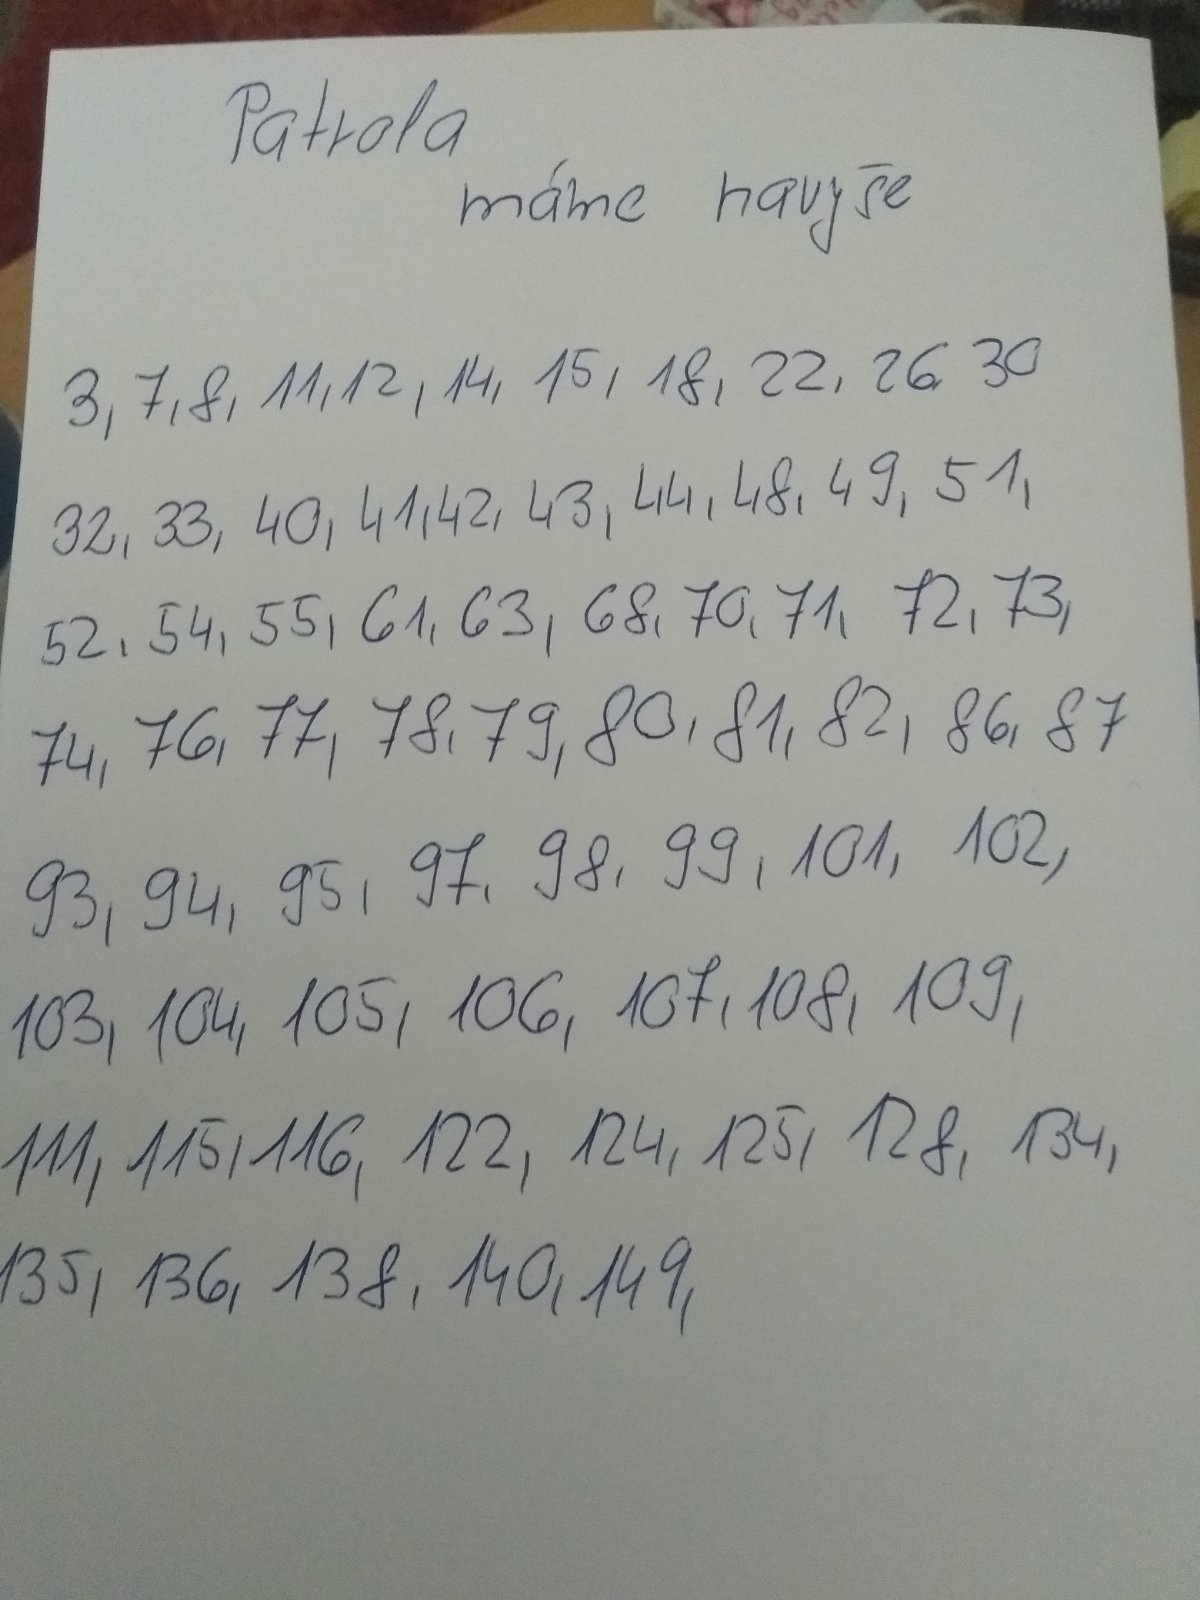 Patrola
máme navyše
3, 7, 8, 11, 12, 14, 15, 18, 22, 26 30
32, 33, 40, 41, 42, 43, 44, 48, 49, 51,
52, 54, 55, 61, 63, 68, 70, 71, 72, 73,
74, 76, 77, 78, 79, 80, 81, 82, 86, 87
93, 94, 95, 97, 98, 99, 101, 102,
103, 104, 105, 106, 107, 108, 109,
111, 115, 116, 122, 124, 125, 128, 134,
135, 136, 138, 140, 149,